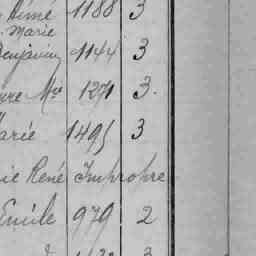 Aimé 1188 3
Marie
Benjamin 1144 3
Mie 1271 3.
Marie 1495 3
René Impropre
Emile 979 2
3